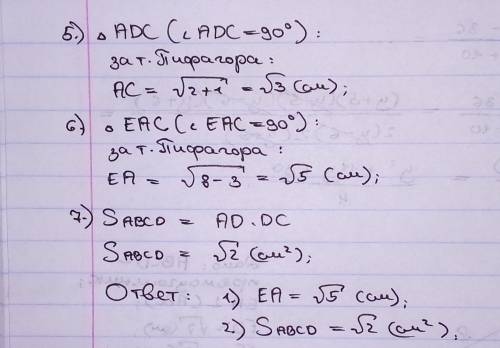 5.) △ ADC (∠ ADC = 90°) :
за т. Пифагора :
AC = √2+1 = √3 (см);
6.) △ EAC (∠ EAC = 90°) :
за т. Пифагора :
EA = √8-3 = √5 (см);
7.) SABCD = AD · DC
SABCD = √2 (см²);
Ответ : 1.) EA = √5 (см);
2.) SABCD = √2 (см²).